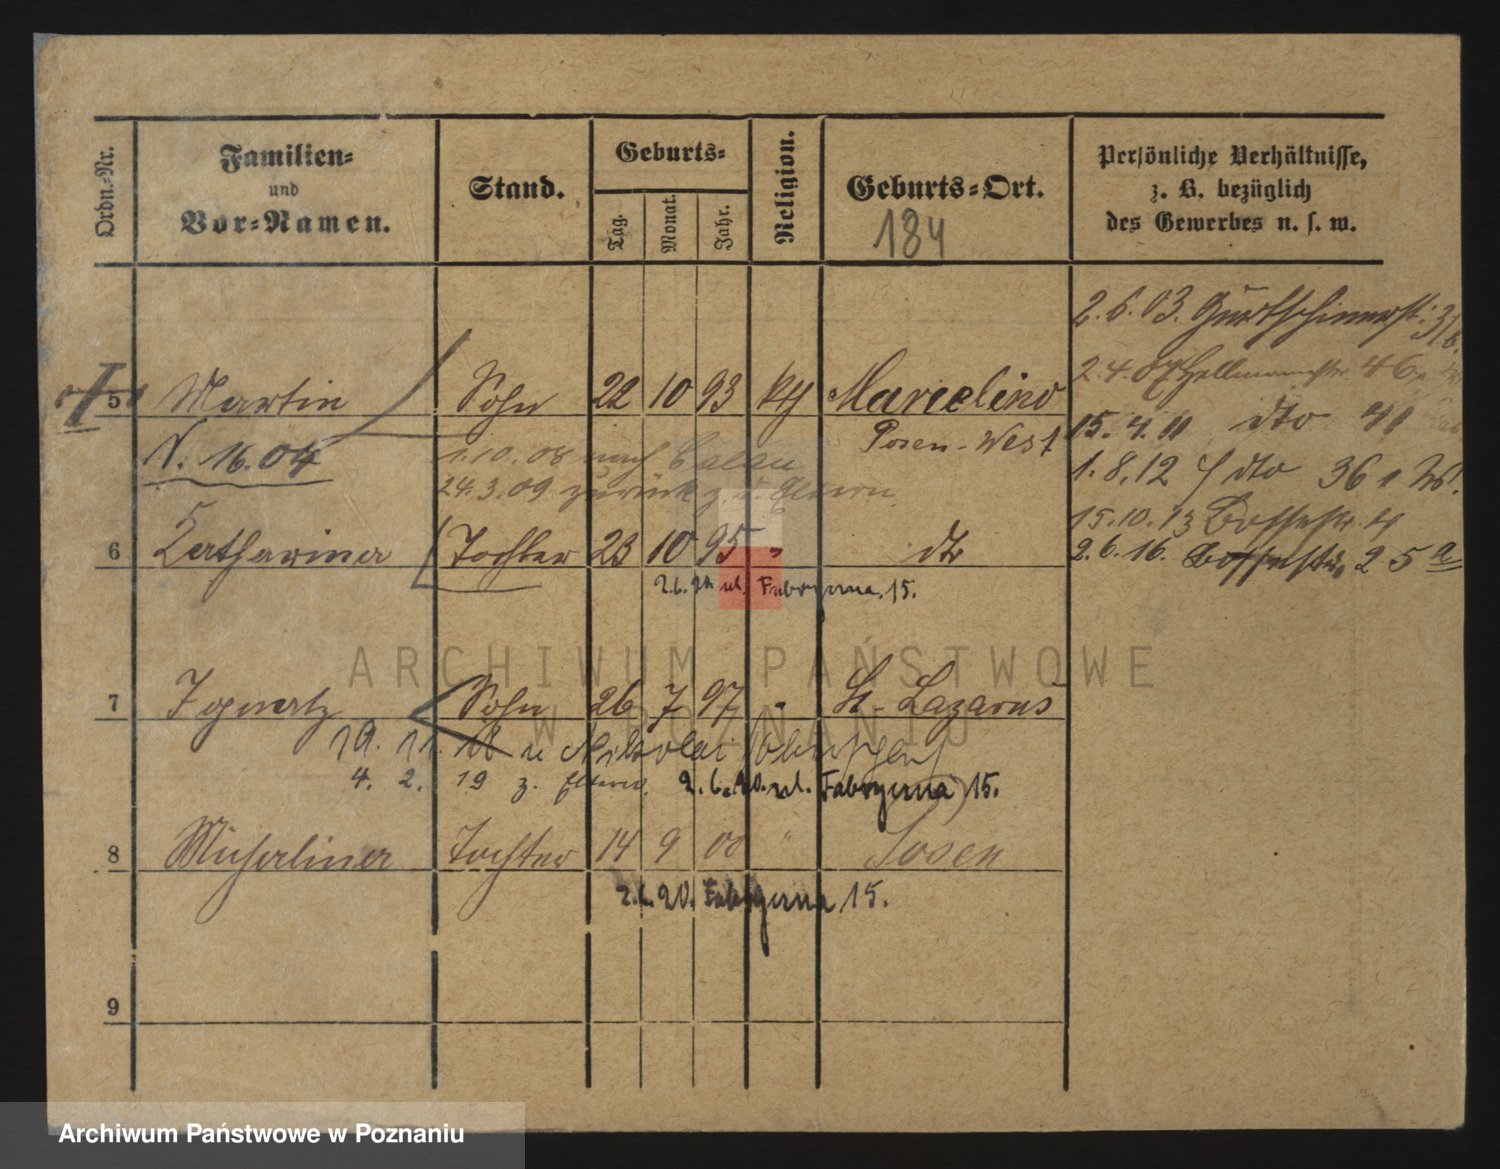 Ordn.-Nr.
Familien=
und
Vor=Namen.
Stand.
Geburts=
Tag.
Monat.
Jahr.
Religion.
Geburts=Ort.
184
Persönliche Verhältnisse,
z. B. bezüglich
des Gewerbes u. s. w.
2.6.03. Gurtschinerstr. 31b.
5 Martin Sohn 22 10 93 kth Marcelino
2.4.07 Hellmannstr. 46
Posen-West
15.4.11 dto 41
V. 16.04
1.10.08 nach Calau
1.8.12 dto 36
24.3.09 zurück z. d. Eltern
15.10.13 Bossestr. 4
6 Katharina Tochter 23 10 95 " dto
2.6.16. Bossestr. 25a
2.6.20 ul. Fabryczna 15.
7 Ignatz Sohn 26 7 97 " St. Lazarus
19. 11. 18 n Nikolai
4. 2. 19 z. Eltern. 2.6.20. ul. Fabryczna 15.
8 Michalina Tochter 14 9 00 " Posen
2.6.20. Fabryczna 15.
9
ARCHIWUM PAŃSTWOWE
W POZNANIU
Archiwum Państwowe w Poznaniu